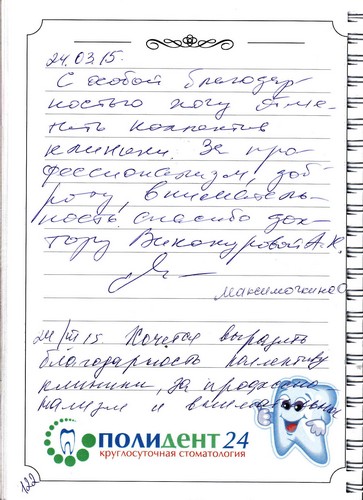 24.03.15.
С особой благодар-
ностью хочу отме-
тить коллектив
клиники. За про-
фессионализм, доб-
роту, вниматель-
ность спасибо док-
тору Винокуровой А.К.
Максимочкина О
24/III 15. Хочется выразить
благодарность коллективу
клиники, за професио
нализм и внимательное
ПОЛИДЕНТ 24
круглосуточная стоматология
122